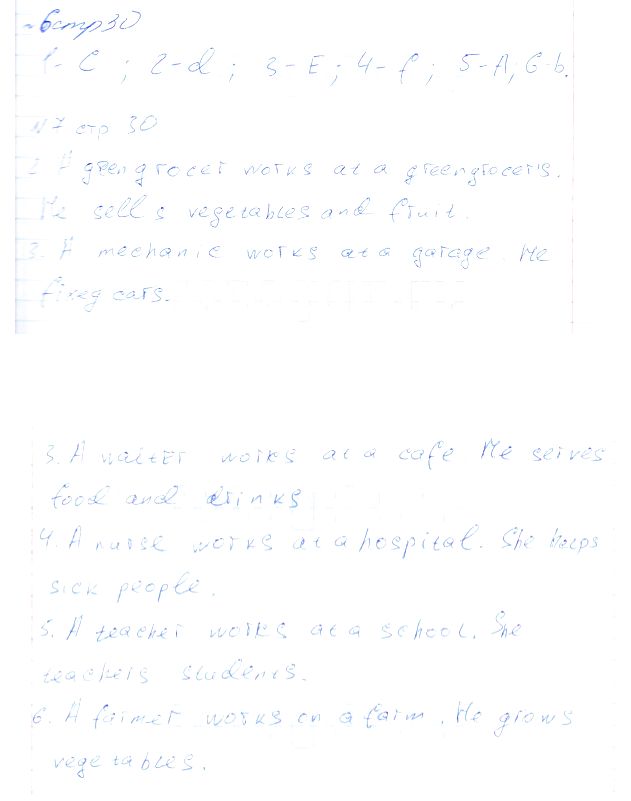 №6 стр 30
1-C; 2-d; 3-E; 4-f; 5-A, 6-b.
№7 стр 30
2. A greengrocer works at a greengrocer's.
He sells vegetables and fruit.
3. A mechanic works at a garage. He
fixeg cars.
3. A waiter works at a cafe He serves
food and drinks
4. A nurse works at a hospital. She helps
sick people.
5. A teacher works at a school. She
teachers students.
6. A farmer works on a farm. He grows
vegetables.